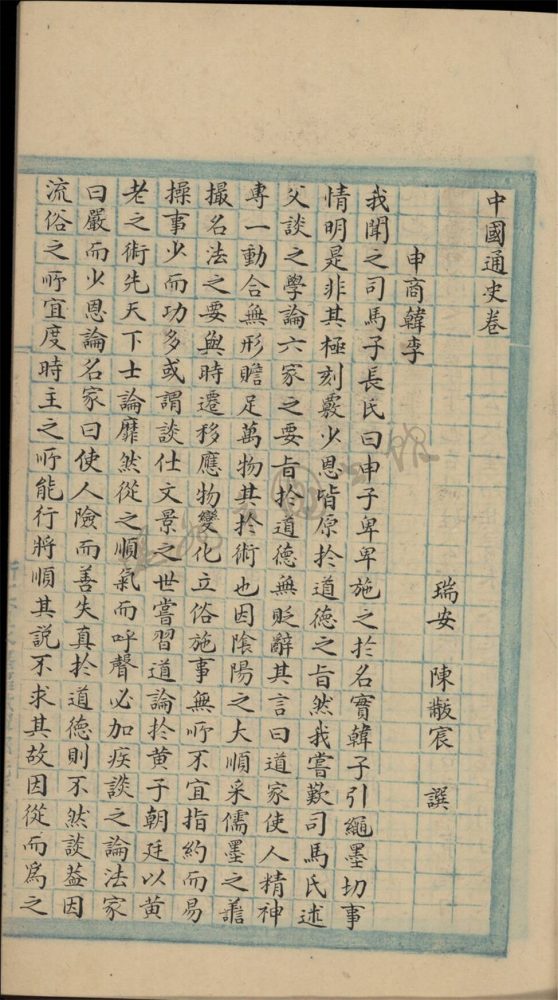 中國通史卷
瑞安　陳黻宸　譔
申商韓李
我聞之司馬子長氏曰申子卑卑施之於名實韓子引繩墨切事
情明是非其極刻覈少恩皆原於道德之旨然我嘗歎司馬氏述
父談之學論六家之要旨於道德無貶辭其言曰道家使人精神
專一動合無形贍足萬物其於術也因陰陽之大順采儒墨之善
撮名法之要與時遷移應物變化立俗施事無所不宜指約而易
操事少而功多或謂談仕文景之世嘗習道論於黄子朝廷以黄
老之術先天下士論靡然從之順氣而呼聲必加疾談之論法家
曰嚴而少恩論名家曰使人險而善失真於道德則不然談葢因
流俗之所宜度時主之所能行將順其説不求其故因從而爲之